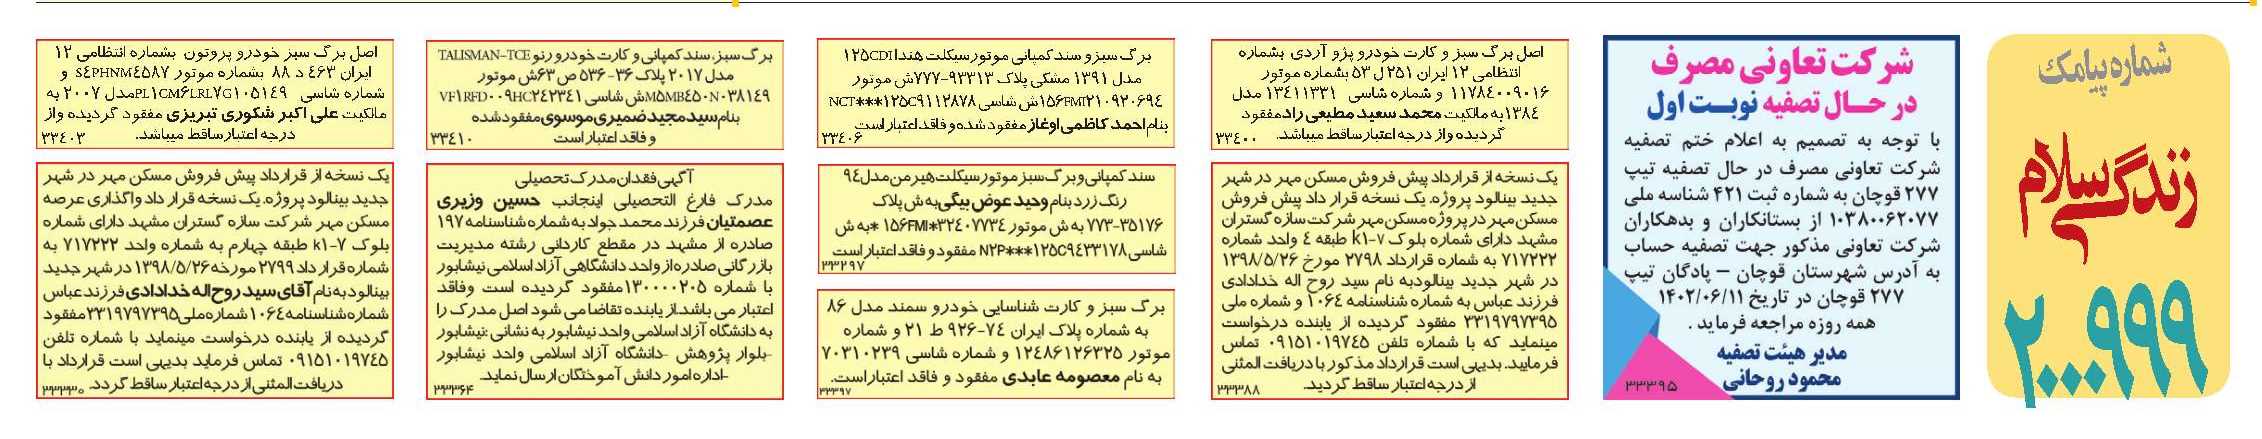 شماره پیامک
زندگی سلام
۲۰۰۰۹۹۹
شرکت تعاونی مصرف
در حـال تصفیه نوبـت اول
با توجه به تصمیم به اعلام ختم تصفیه
شرکت تعاونی مصرف در حال تصفیه تیپ
۲۷۷ قوچان به شماره ثبت ۴۲۱ شناسه ملی
۱۰۳۸۰۰۶۲۰۷۷ از بستانکاران و بدهکاران
شرکت تعاونی مذکور جهت تصفیه حساب
به آدرس شهرستان قوچان – پادگان تیپ
۲۷۷ قوچان در تاریخ ۱۴۰۲/۰۶/۱۱
همه روزه مراجعه فرماید .
مدیر هیئت تصفیه
محمود روحانی
۳۳۳۹۵
اصل برگ سبز و کارت خودرو پژو آردی بشماره
انتظامی ۱۲ ایران ۲۵۱ ل ۵۳ بشماره موتور
۱۱۷۸۴۰۰۹۰۱۶ و شماره شاسی ۱۳۴۱۱۳۳۱ مدل
۱۳۸٤به مالکیت محمد سعید مطیعی رادمفقود
گردیده واز درجه اعتبارساقط میباشد.
۳۳٤۰۰
یک نسخه از قرارداد پیش فروش مسکن مهر در شهر
جدید بینالود پروژه. یک نسخه قرار داد پیش فروش
مسکن مهر در پروژه مسکن مهر شرکت سازه گستران
مشهد دارای شماره بلوک k۱-۷ طبقه ٤ واحد شماره
۷۱۷۲۲۲ به شماره قرارداد ۲۷۹۸ مورخ ۱۳۹۸/۵/۲۶
در شهر جدید بینالودبه نام سید روح اله خدادادی
فرزند عباس به شماره شناسنامه ۱۰۶٤ و شماره ملی
۳۳۱۹۷۹۷۳۹۵ مفقود گردیده از یابنده درخواست
مینماید که با شماره تلفن ۰۹۱۵۱۰۱۹۷٤۵ تماس
فرمایید. بدیهی است قرارداد مذکور با دریافت المثنی
از درجه اعتبار ساقط گردید.
۳۳۳۸۸
برگ سبز و سند کمپانی موتور سیکلت هندا ۱۲۵CDI
مدل ۱۳۹۱ مشکی پلاک ۹۳۳۱۳-۷۷۷ش موتور
۱۵۶FMI۲۱۰۹۲۰۶۹٤ش شاسی NCT***۱۲۵C۹۱۱۲۸۷۸
بنام احمد کاظمی اوغاز مفقود شده و فاقد اعتبار است
۳۳٤۰۶
سند کمپانی وبرگ سبز موتورسیکلت هیرمن مدل۹٤
رنگ زرد بنام وحید عوض بیگی به ش پلاک
۷۷۳-۳۵۱۷۶ به ش موتور ۱۵۶FMI*۳۲٤۰۷۷۳٤ *به ش
شاسی N۲P***۱۲۵C۹٤۳۳۱۷۸ مفقود و فاقد اعتبار است
۳۳۲۹۷
برگ سبز و کارت شناسایی خودرو سمند مدل ۸۶
به شماره پلاک ایران ۷٤-۹۲۶ ط ۲۱ و شماره
موتور ۱۲٤۸۶۱۲۶۳۲۵ و شماره شاسی ۷۰۳۱۰۲۳۹
به نام معصومه عابدی مفقود و فاقد اعتباراست.
۳۳۳۹۷
برگ سبز، سند کمپانی و کارت خودرو رنو TALISMAN-TCE
مدل ۲۰۱۷ پلاک ۳۶-۵۳۶ ص ۶۳ش موتور
M۵MB٤۵۰N۰۳۸۱٤۹ش شاسی VF۱RFD۰۰۹HC۲٤۲۳٤۱
بنام سیدمجید ضمیری موسوی مفقود شده
و فاقد اعتبار است
۳۳٤۱۰
آگهی فقدان مدرک تحصیلی
مدرک فارغ التحصیلی اینجانب حسین وزیری
عصمتیان فرزند محمد جواد به شماره شناسنامه ۱۹۷
صادره از مشهد در مقطع کاردانی رشته مدیریت
بازرگانی صادره از واحد دانشگاهی آزاد اسلامی نیشابور
با شماره ۱۳۰۰۰۰۲۰۵ مفقود گردیده است وفاقد
اعتبار می باشد.از یابنده تقاضا می شود اصل مدرک را
به دانشگاه آزاد اسلامی واحد نیشابور به نشانی :نیشابور
-بلوار پژوهش -دانشگاه آزاد اسلامی واحد نیشابور
-اداره امور دانش آموختگان ارسال نماید.
۳۳۳۶۴
اصل برگ سبز خودرو پروتون بشماره انتظامی ۱۲
ایران ٤۶۳ د ۸۸ بشماره موتور S٤PHNM٤۵۸۷ و
شماره شاسی PL۱CM۶LRL۷G۱۰۵۱٤۹مدل ۲۰۰۷ به
مالکیت علی اکبر شکوری تبریزی مفقود گردیده واز
درجه اعتبار ساقط میباشد.
۳۳٤۰۳
یک نسخه از قرارداد پیش فروش مسکن مهر در شهر
جدید بینالود پروژه. یک نسخه قرار داد واگذاری عرصه
مسکن مهر شرکت سازه گستران مشهد دارای شماره
بلوک k۱-۷ طبقه چهارم به شماره واحد ۷۱۷۲۲۲ به
شماره قرار داد ۲۷۹۹ مورخه ۱۳۹۸/۵/۲۶ در شهر جدید
بینالود به نام آقای سید روح اله خدادادی فرزند عباس
شماره شناسنامه ۱۰۶٤ شماره ملی۳۳۱۹۷۹۷۳۹۵مفقود
گردیده از یابنده درخواست مینماید با شماره تلفن
۰۹۱۵۱۰۱۹۷٤۵ تماس فرماید بدیهی است قرارداد با
دریافت المثنی از درجه اعتبار ساقط گردد.
۳۳۳۳۰